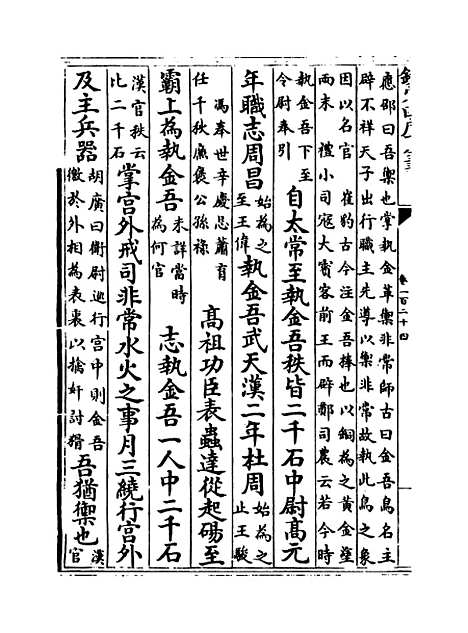 欽定四庫全書
卷一百二十四
應劭曰吾禦也掌執金革禦非常師古曰金吾鳥名主
辟不祥天子出行職主先導以禦非常故執此鳥之象
因以名官 崔豹古今注金吾棒也以銅為之黃金塗
兩末 禮小司寇大賓客前王而辟鄭司農云若今時
執金吾下至
令尉奉引
自太常至執金吾秩皆二千石中尉高元
年職志周昌
始為之
至王偉
執金吾武天漢二年杜周
始為之
止王駿
馮奉世辛慶忌蕭育
任千秋廉褒公孫祿
高祖功臣表蟲達從起碭至
霸上為執金吾
未詳當時
為何官
志執金吾一人中二千石
漢官秩云
比二千石
掌宫外戒司非常水火之事月三繞行宫外
及主兵器
胡廣曰衛尉巡行宫中則金吾
徼於外相為表裏以擒奸討猾
吾猶禦也
漢
官